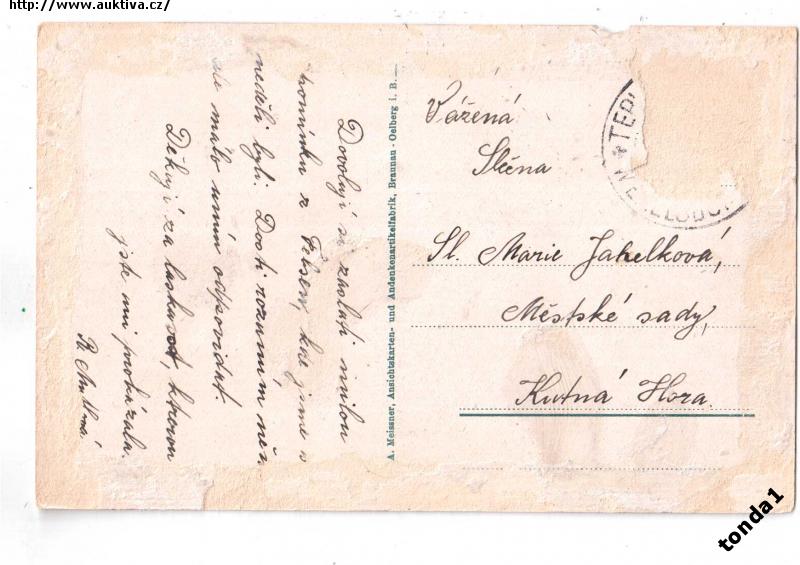 http://www.auktiva.cz/
Dovoluji si zaslati milou
z Felsen, kde jsme v
neděli byli. Dosti rozumím něm
ale málo umím odpovídat.
Děkuji za laskavost, kterou
jste mi prokázala.
A. Meissner, Ansichtskarten- und Andenkenartikelfabrik, Braunau - Oelberg i. B.
Vážená
Slečna
Sl. Marie Jahelková,
Městské sady,
Kutná Hora.
TEP
tonda1